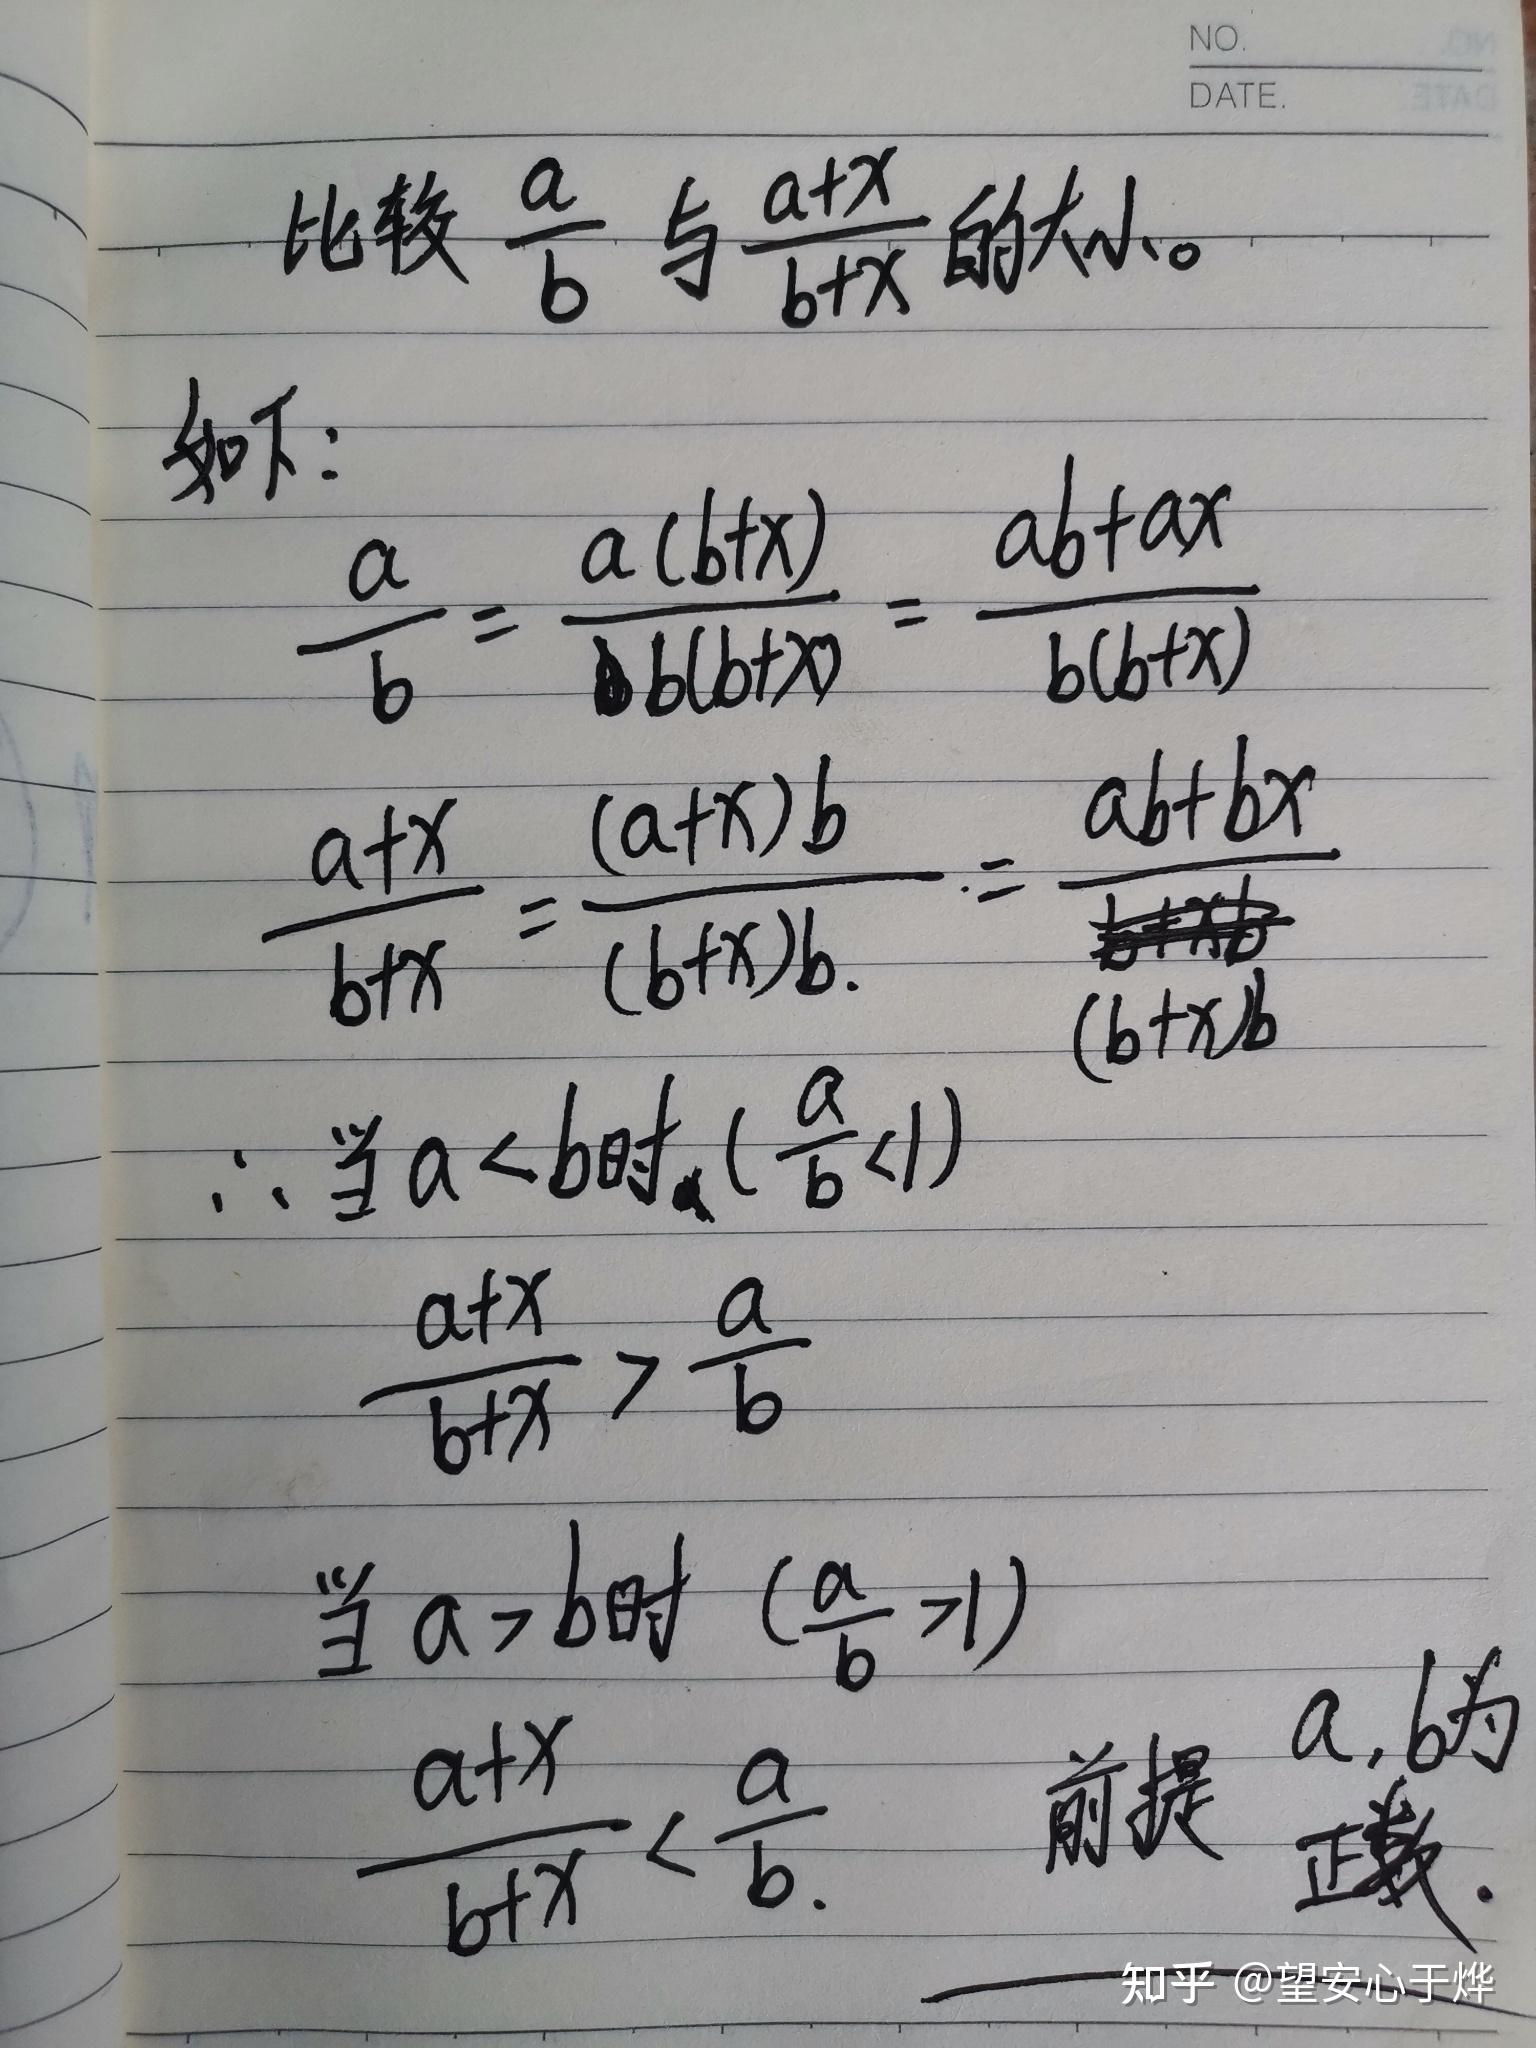 NO.
DATE.
比较 a/b 与 a+x/b+x 的大小。
如下:
a/b = a(b+x)/b(b+x) = ab+ax/b(b+x)
a+x/b+x = (a+x)b/(b+x)b. = ab+bx/(b+x)b
∴当a<b时 (a/b<1)
a+x/b+x > a/b
当a>b时 (a/b>1)
a+x/b+x < a/b.
前提 a,b为
正数.
知乎 @望安心于烨